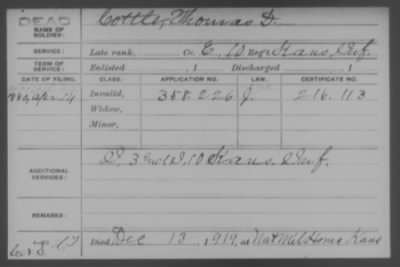 DEAD
NAME OF SOLDIER: Cottle, Thomas D.
SERVICE: Late rank, Co. E, 10 Reg't Kans. Inf.
TERM OF SERVICE: Enlisted , 1 Discharged , 1
DATE OF FILING. CLASS. APPLICATION NO. LAW. CERTIFICATE NO.
1880, Apr. 14 Invalid, 358.226 J. 216.113
Widow,
Minor,
ADDITIONAL SERVICES: D. 3 10 Kans. Inf.
REMARKS:
Died Dec 13, 1919, at Nat Mil Home Kans